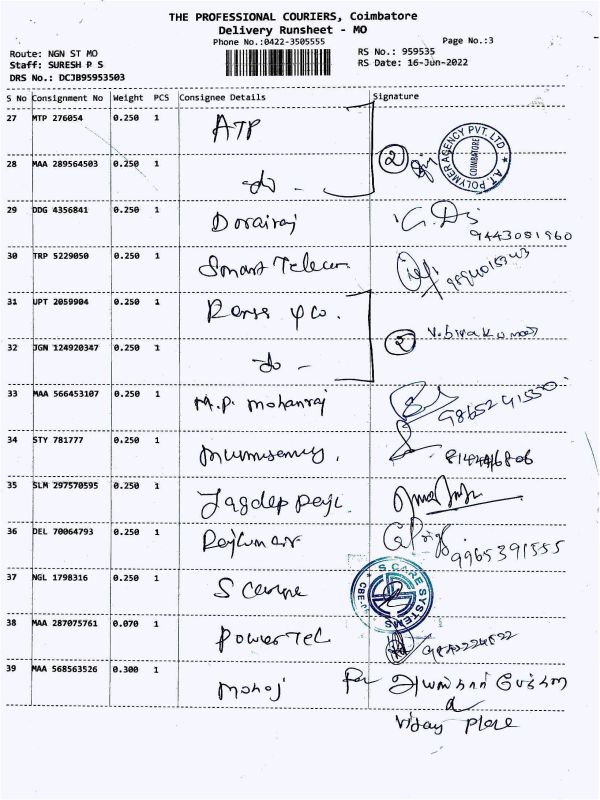 THE PROFESSIONAL COURIERS, Coimbatore
Delivery Runsheet - MO
Phone No.:0422-3505555
Page No.:3
Route: NGN ST MO
RS No.: 959535
Staff: SURESH P S
RS Date: 16-Jun-2022
DRS No.: DCJB95953503
S No Consignment No Weight PCS Consignee Details Signature
27 MTP 276054 0.250 1 ATP
2
A.T. POLYMER AGENCY PVT. LTD
COIMBATORE
28 MAA 289564503 0.250 1 do -
29 DDG 4356841 0.250 1 Dorairaj
9443081960
30 TRP 5229050 0.250 1 Smart Telecom
31 UPT 2059904 0.250 1
2
32 JGN 124920347 0.250 1 do -
33 MAA 566453107 0.250 1 M.P. mohanraj
34 STY 781777 0.250 1
35 SLM 297570595 0.250 1
36 DEL 70064793 0.250 1 Rajkumar
9965391555
37 NGL 1798316 0.250 1
S CARE SYSTEMS
38 MAA 287075761 0.070 1 PowerTec
39 MAA 568563526 0.300 1 Manoj
for
Vijay